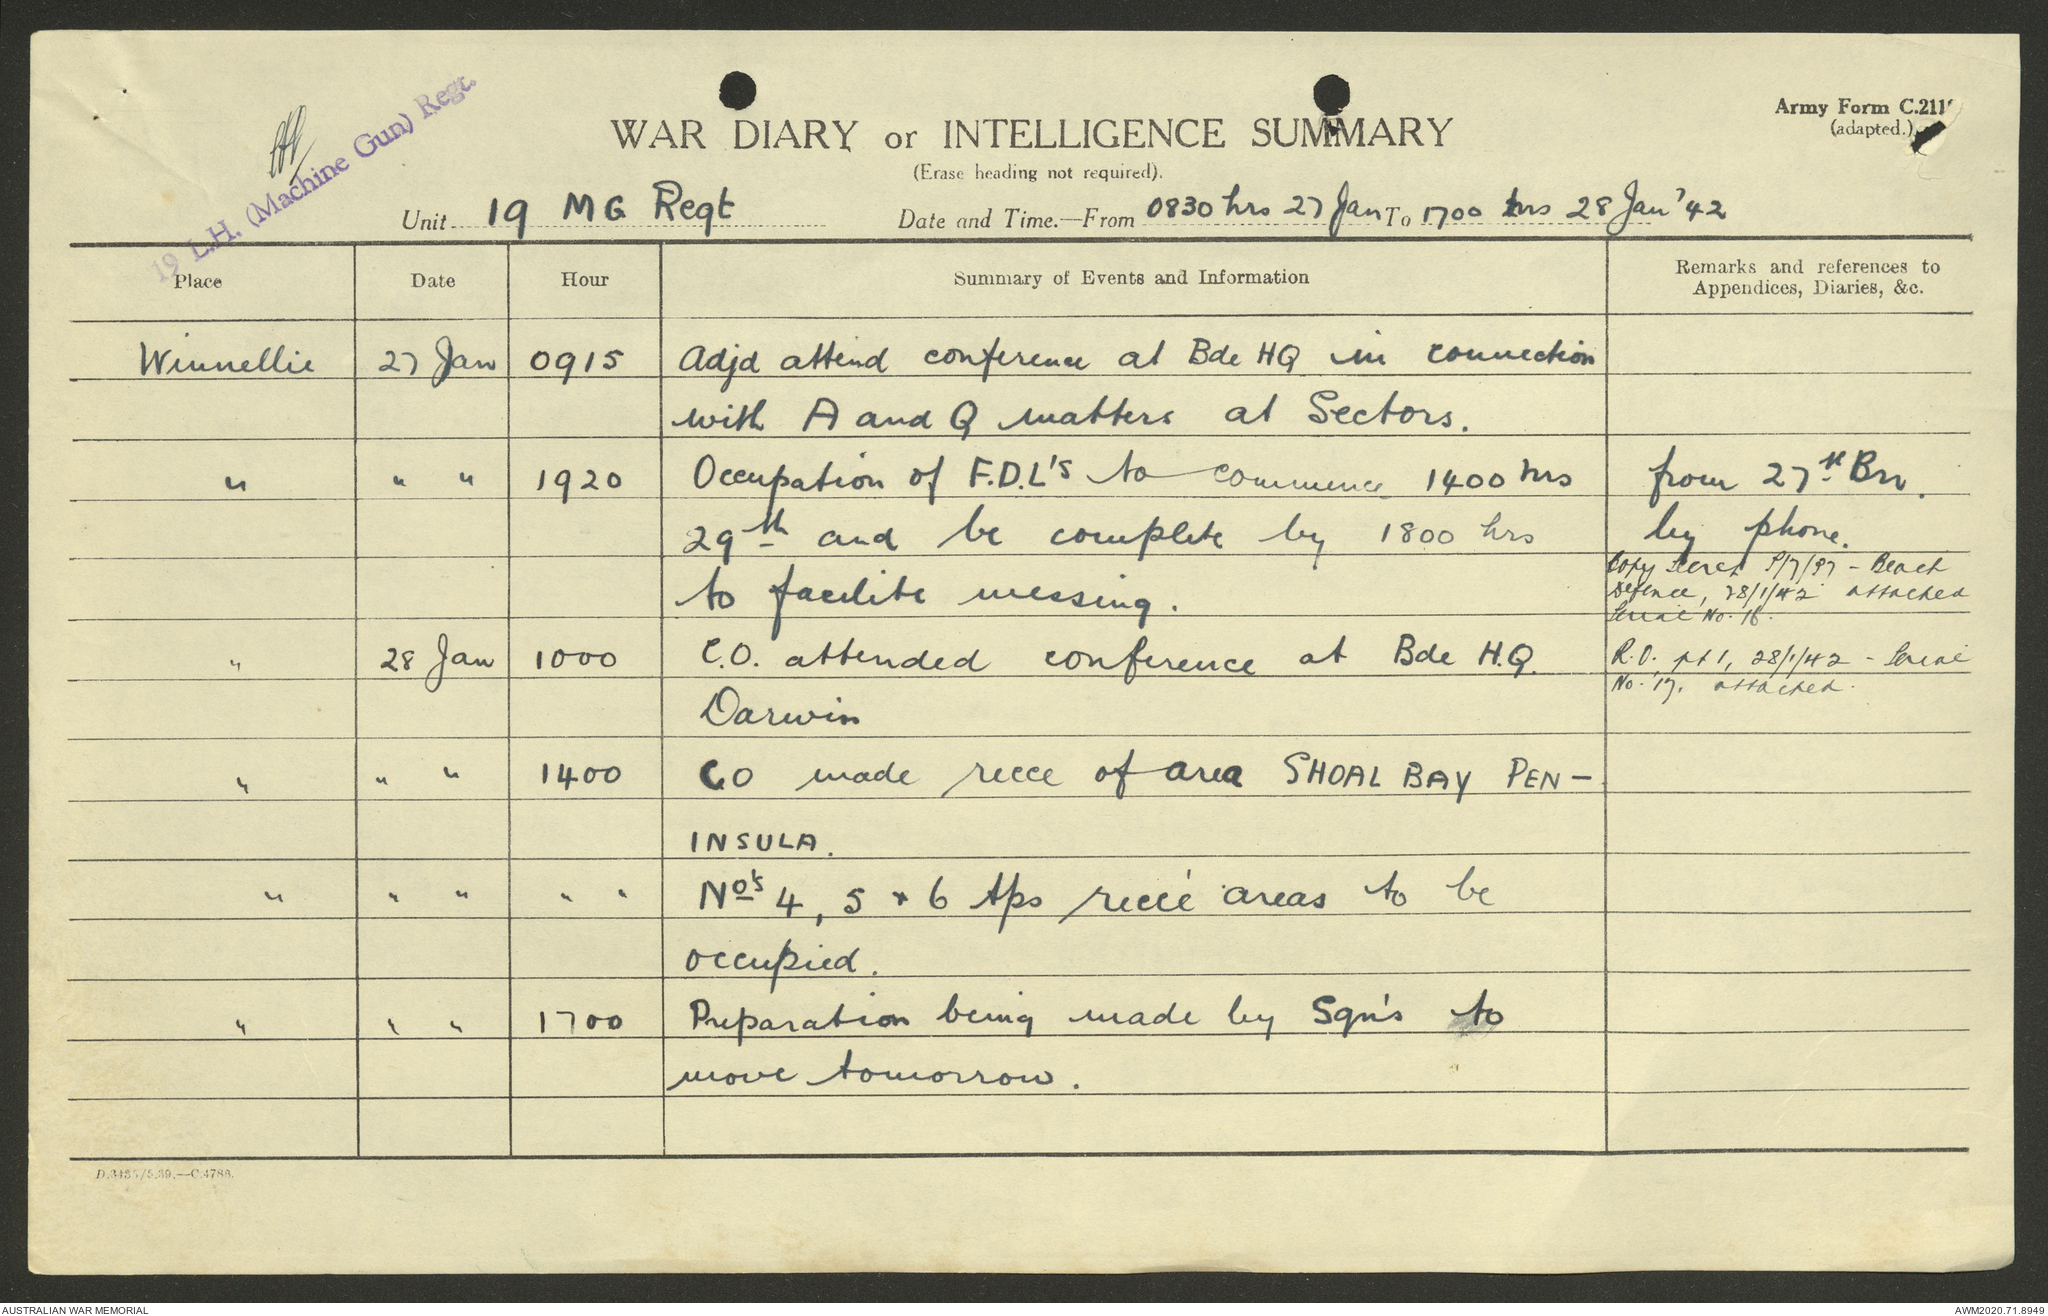 19 L.H. (Machine Gun) Regt.
Army Form C.211
(adapted.)
WAR DIARY or INTELLIGENCE SUMMARY
(Erase heading not required).
Unit 19 MG Regt Date and Time.—From 0830 hrs 27 Jan To 1700 hrs 28 Jan '42
Place Date Hour Summary of Events and Information Remarks and references to
Appendices, Diaries, &c.
Winnellie 27 Jan 0915 Adjd attend conference at Bde HQ in connection
with A and Q matters at Sectors.
" " " 1920 Occupation of F.D.L's to commence 1400 hrs from 27th Bn.
29th and be complete by 1800 hrs by phone.
to facilite messing. Copy Secret 9/7/97 - Beach
Defence, 28/1/42 attached
Serial No. 16.
" 28 Jan 1000 C.O. attended conference at Bde H.Q. R.O. pt 1, 28/1/42 - Serial
No. 17. attached.
Darwin
" " " 1400 CO made recce of area SHOAL BAY PEN-
INSULA.
" " " " " No's 4, 5 + 6 tps recce areas to be
occupied.
" " " 1700 Preparation being made by Sqn's to
move tomorrow.
D.3435/5.39.—C.4786.
AUSTRALIAN WAR MEMORIAL AWM2020.71.8949